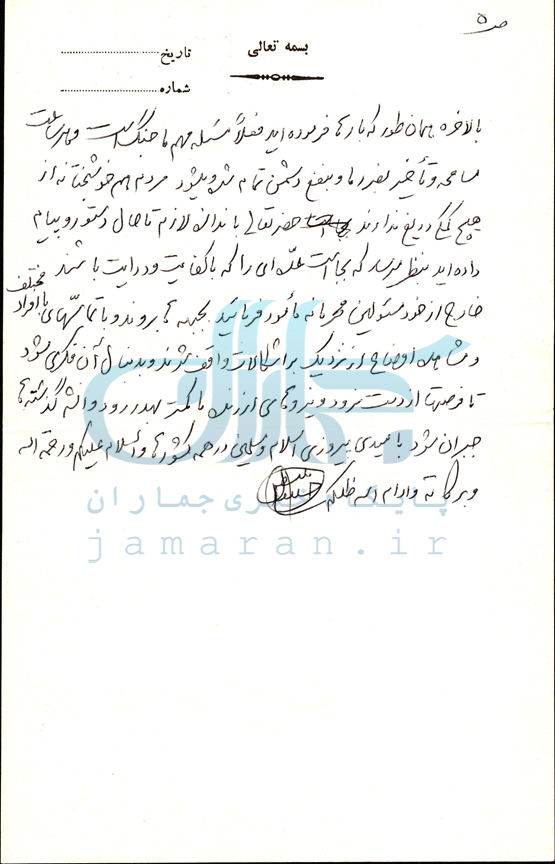 ص ۵
بسمه تعالی
تاریخ
شماره
بالاخره همان طور که بارها فرموده اید فعلاً مسئله مهم ما جنگ است و هر ساعت
مسامحه و تأخیر بضرر ما و بنفع دشمن تمام شده و میشود مردم هم خوشبختانه از
هیچ کمکی دریغ ندارند حضرتعالی باندازه لازم تا حال دستور و پیام
داده اید بنظر میرسد که بجا است عدّه ای را که با کفایت و درایت باشند
خارج از خود مسئولین محرمانه مأمور فرمائید بجبهه ها بروند و با تماسهای با افراد مختلف
و مشاهده اوضاع از نزدیک بر اشکالات واقف شوند و بدنبال آن فکری شود
تا فرصتها از دست نرود و نیروهای ارزنده ما کمتر بهدر رود و انشاء گذشته ها
جبران شود با امید پیروزی اسلام و مسلمین در همه کشورها والسلام علیکم و رحمة الله
و برکاته و ادام الله ظلکم
جماران
پایگاه خبری جماران
jamaran.ir